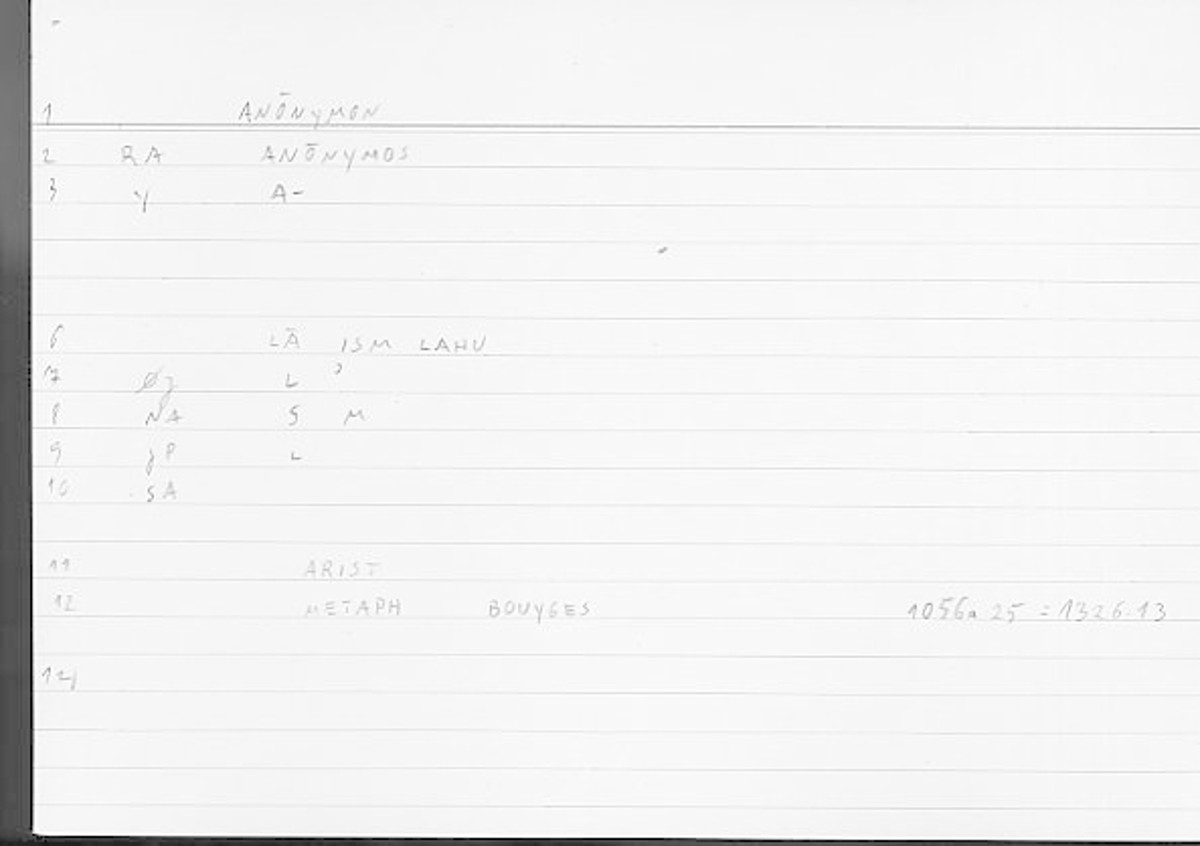 1 ANŌNYMON
2 RA ANŌNYMOS
3 Y A-
6 LĀ ISM LAHU
7 L ʾ
8 NA S M
9 jP L
10 SA
11 ARIST
12 METAPH BOUYGES 1056a 25 = 1326.13
14